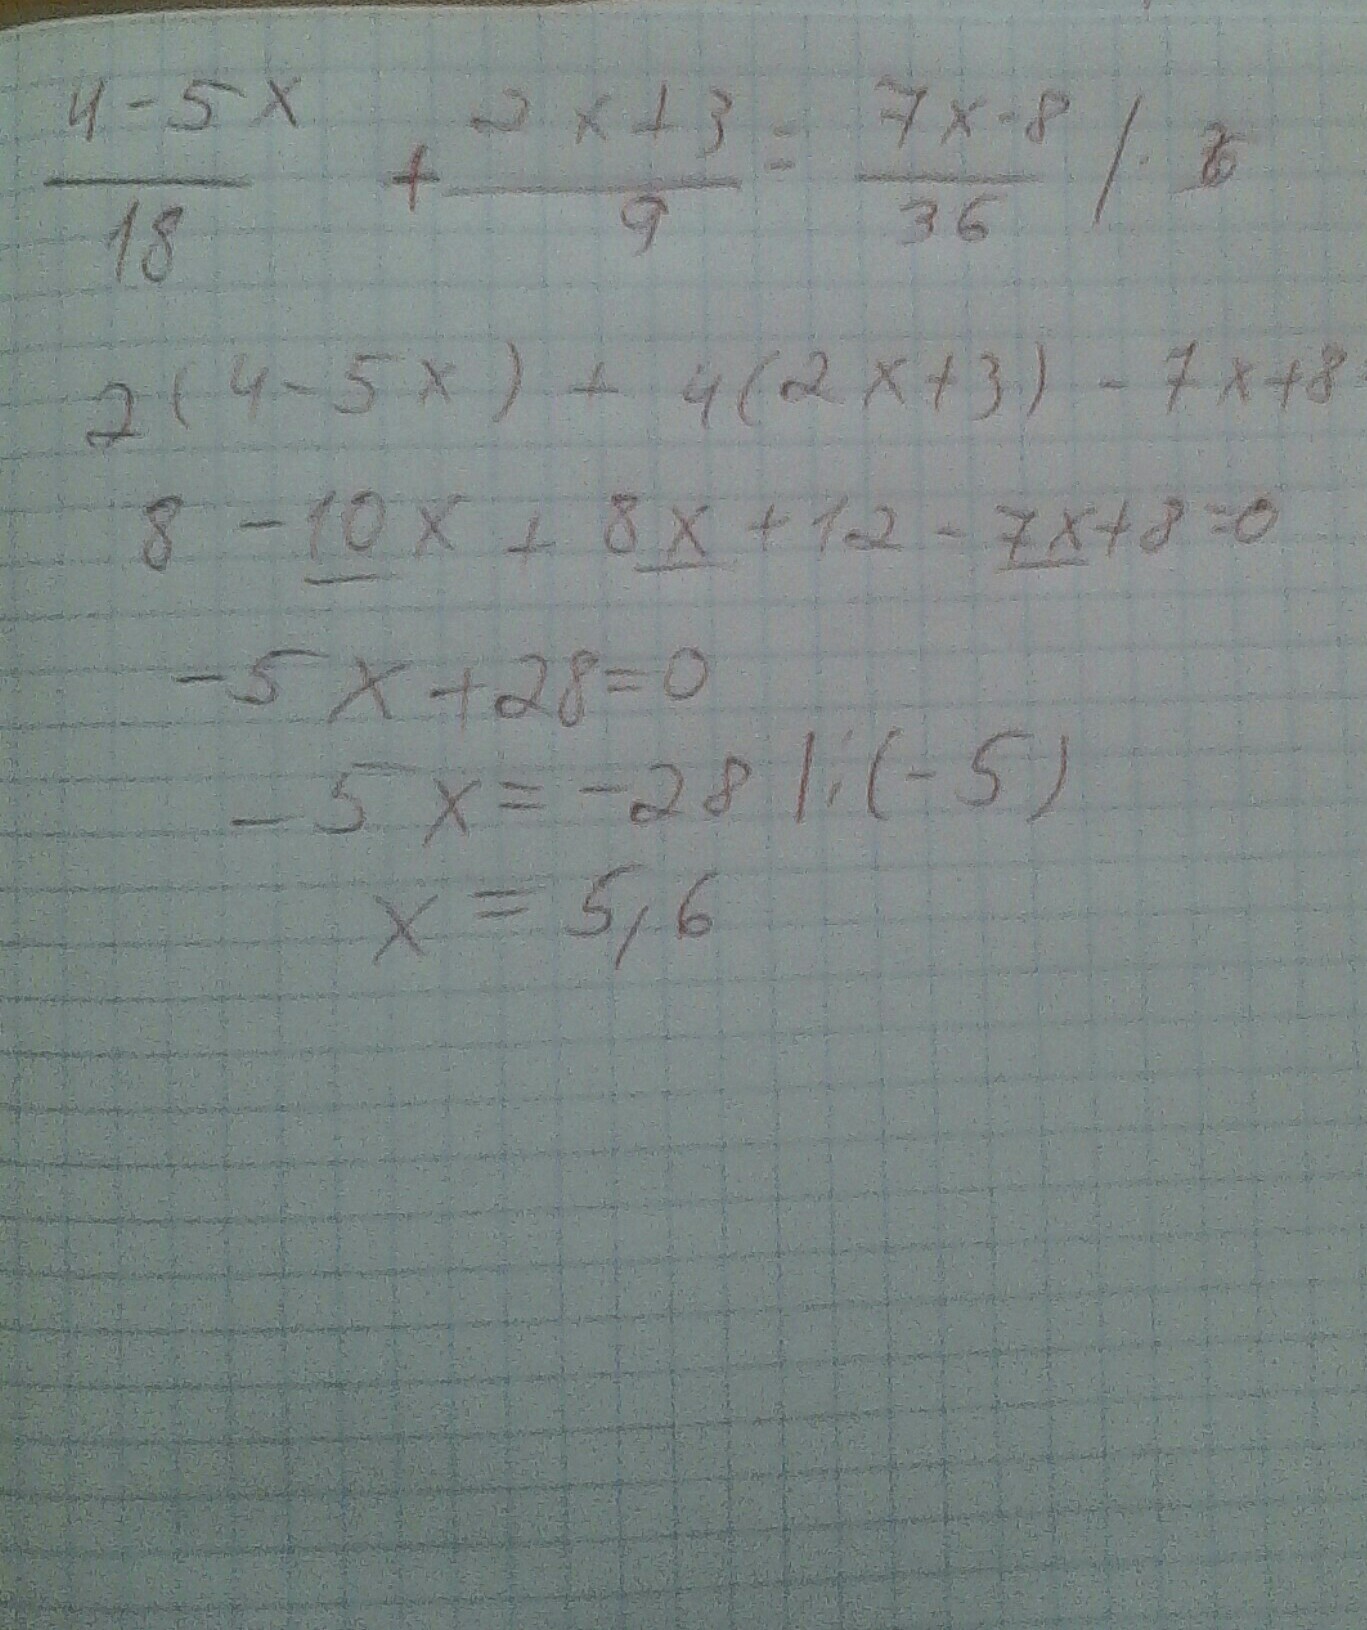 (4-5x)/18 + (2x+3)/9 = (7x-8)/36 / ·
2(4-5x) + 4(2x+3) - 7x+8
8 - 10x + 8x + 12 - 7x+8=0
-5x+28=0
-5x = -28 |:(-5)
x = 5,6